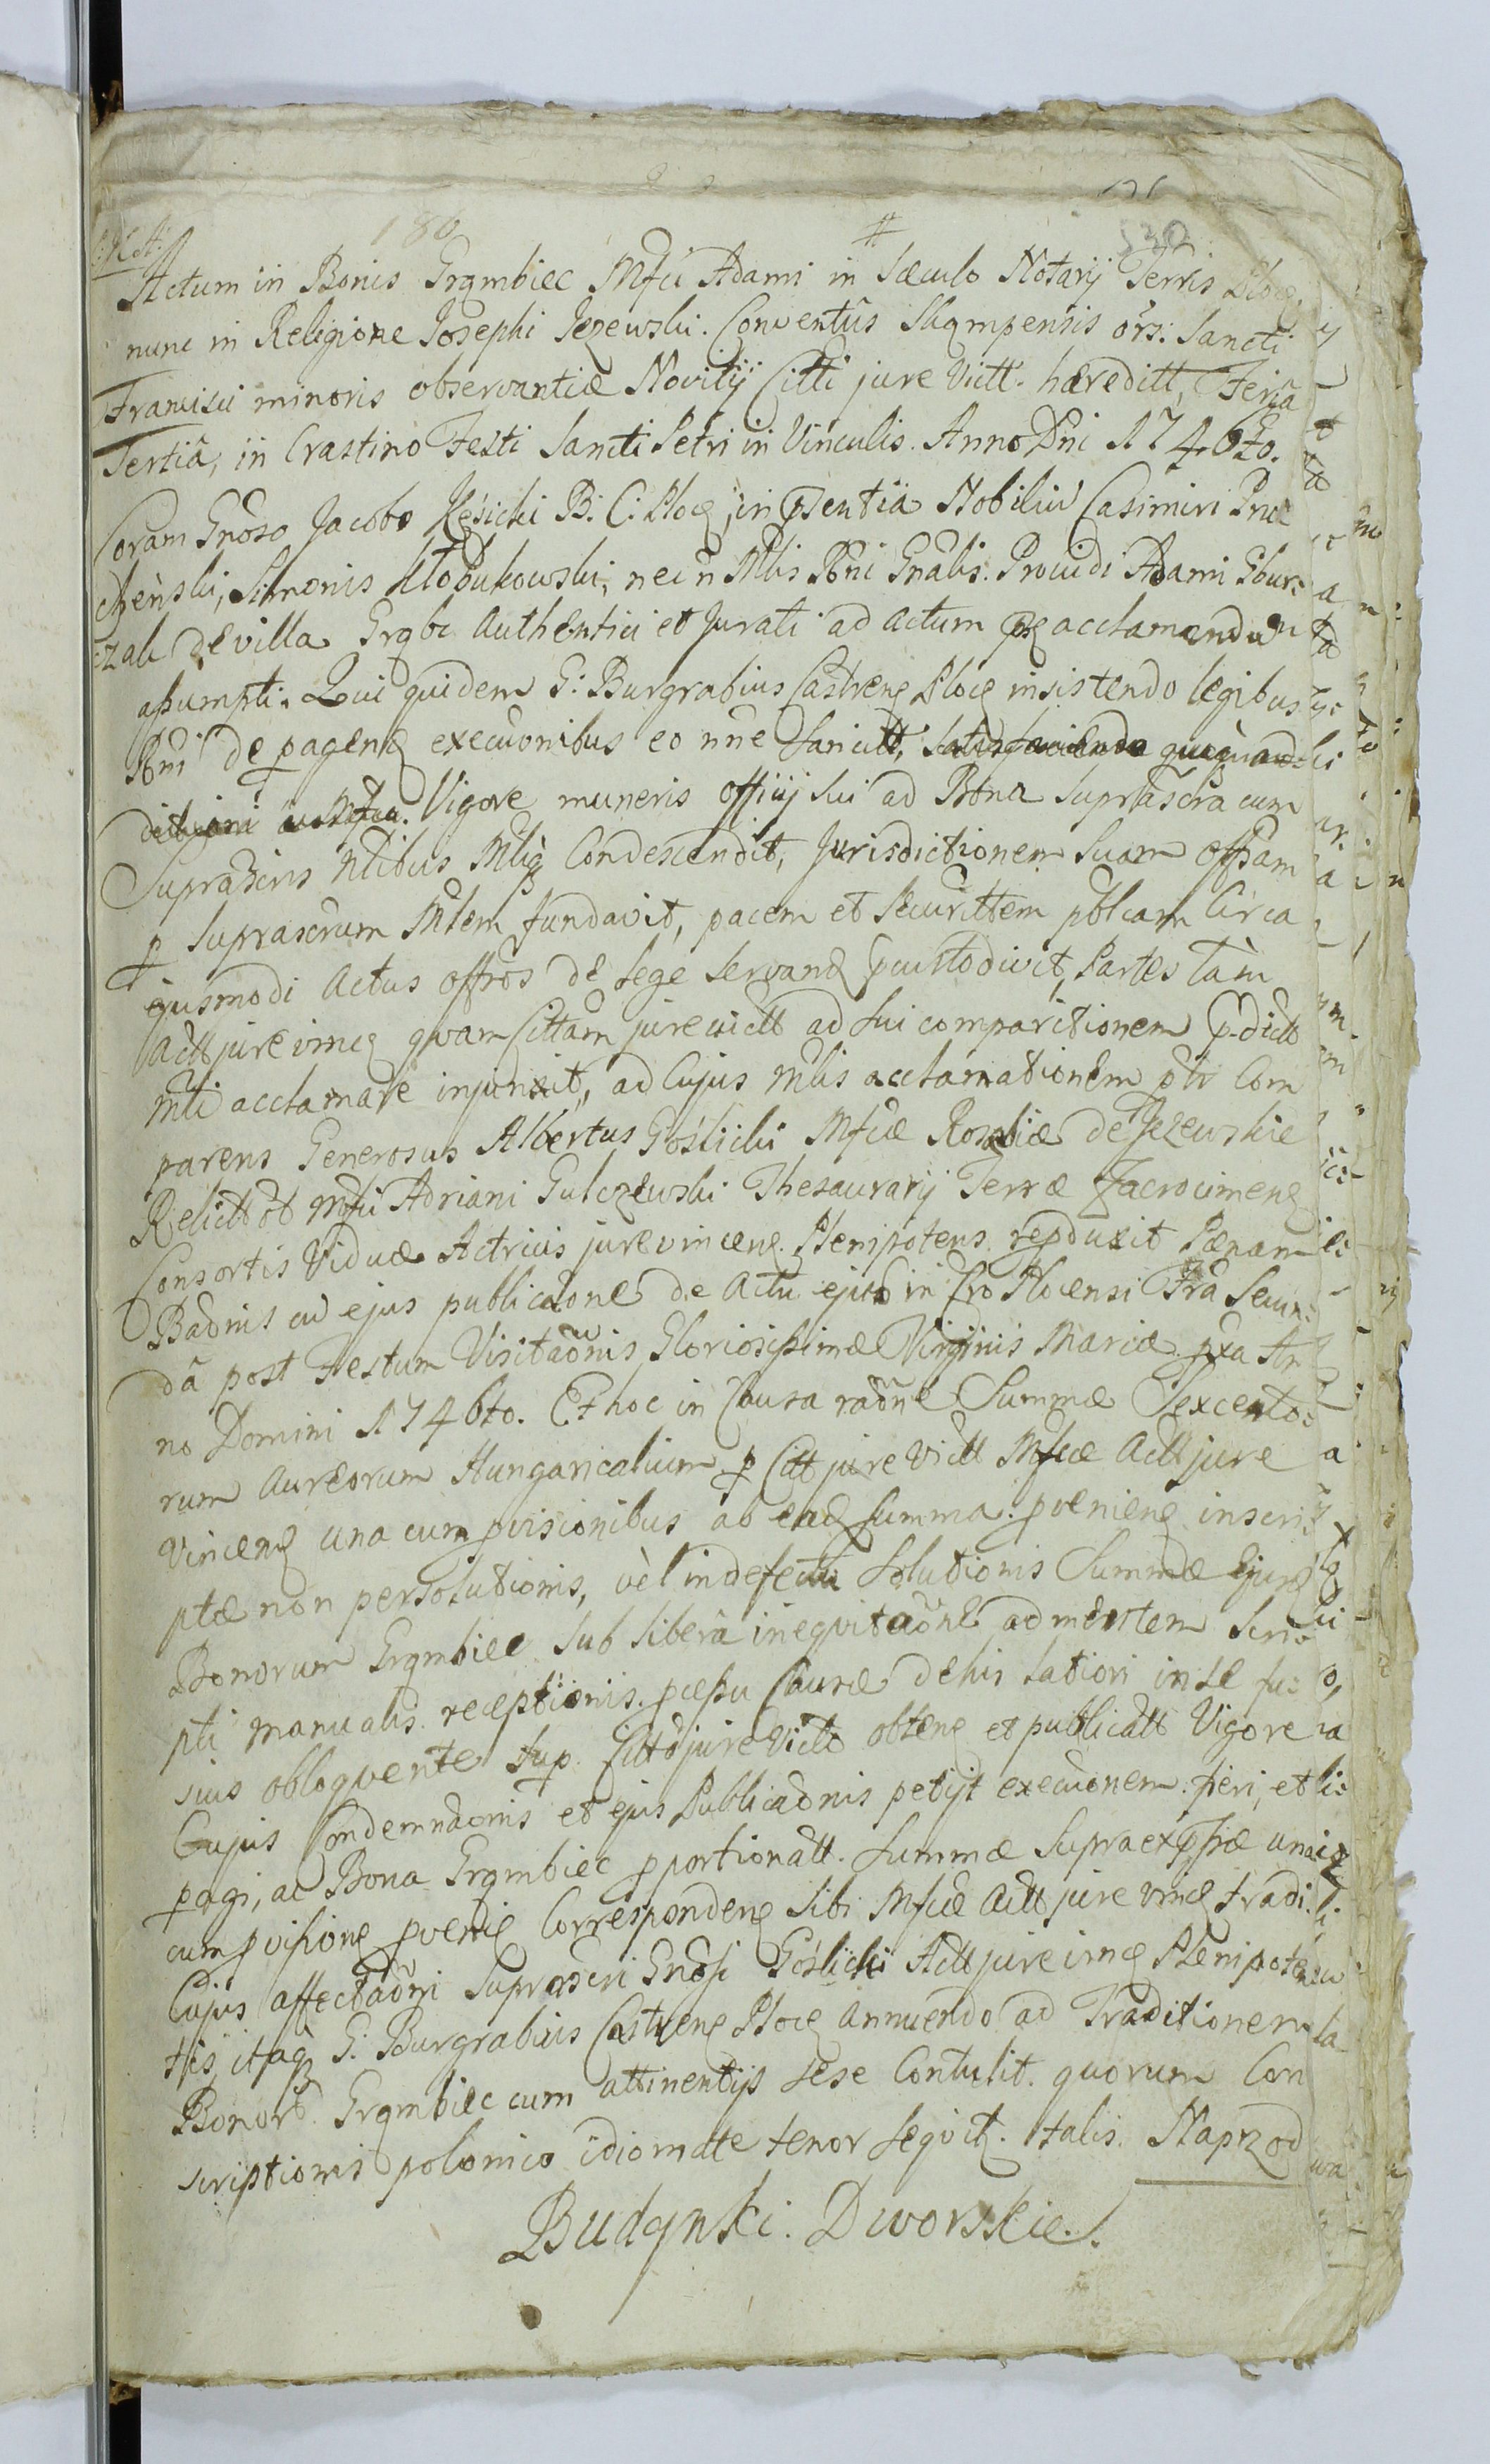 180 #
Actum in Bonis Grąmbiec Mfci Adami in Sæculo Notarij Terris Ploc
nunc in Religione Josephi Jezewski. Conventûs Skąmpensis ors: Sancti
Francisci minoris observantiæ Novitij Citti jure Victt. hæreditt, Feriâ
Tertiâ, in Crastino Festi Sancti Petri in Vinculis. Anno Dni 1746to.
Coram Gnoso Jacobo Kęsicki B: C: Ploc, in psentiâ Nobiliū Casimiri
Simonis Kłobukowski, nec n Mlis Rni Gnalis. Providi Adami Gbur=
=zak de villa Grąbc Authentici et Jurati ad actum pŋ acclamandum
aßumpti. Qui quidem G: Burgrabius Castren Ploc insistendo legibus
Rni de pagen execuonibus eo nne Sancitt,
Vigore muneris officij sui ad Bona suprascra cum
Suprascris Nlibus Mliq Condescendit, Jurisdictionem Suam offsam
p suprascrum Mlem fundavit, pacem et securittem pblcam Circa
ejusmodi Actus offsos de lege servan pcustodivit, Partes tàm
Actt jure vinc quam Cittam jure victt ad sui comparitionem p-dictt
Mli acclamare injunxit, ad Cujus Mlis acclamationem ptr Com
parens Generosus Albertus Goślicki Mfcæ Rosaliæ de Jezewskie
Relictt ot Mfci Adriani Gulczewski Thesaurarij Terræ Zacrocimen
Consortis Viduæ Actricis jure vincen. Plenipotens. repduxit Pænam
Baonis cu ejus publicaone de Actu ejusd in Cro Plocensi Fra Secun=
dâ post Festum Visitaonis Gloriosißimæ Virginis Mariæ pxa An
no Domini 1746to. Et hoc in Causa raone Summæ Sexcento=
rum Aureorum Hungaricalium p Citt jure Victt Mfcæ Actt jure
vincen una cum pvisionibus ab ead summa pvenien inscri=
ptæ non persolutionis, vèl in defectu Solutionis Summæ ejusd
Bonorum Grąmbiec sub liberâ inequitaone ad mentem scri=
pti manualis receptionis. pceßu Causæ de his latiori in se fu=
sius obloquente sup. Citto jure Victo obten et publicatt Vigore
Cujus Condemnaonis et ejus Publicaonis petijt execuionem fieri, et
pagi, ac Bona Grąmbiec pportionatt. Summæ supraexpssæ una
cum pvisione pvenie Corresponden sibi Mfcæ Actt jure vinc tradi.
Cujus affectaoni suprascri Gnosi Goślicki Actt jure vinc Plenipoten
tis, itaq G: Burgrabius Castren Ploc annuendo ad Traditionem
Bonor. Grąmbiec cum attinentijs sese Contulit. quorum Con
scriptionis polonico idiomate tenor sequit. talis. Naprzod
Budynki. Dworskie.